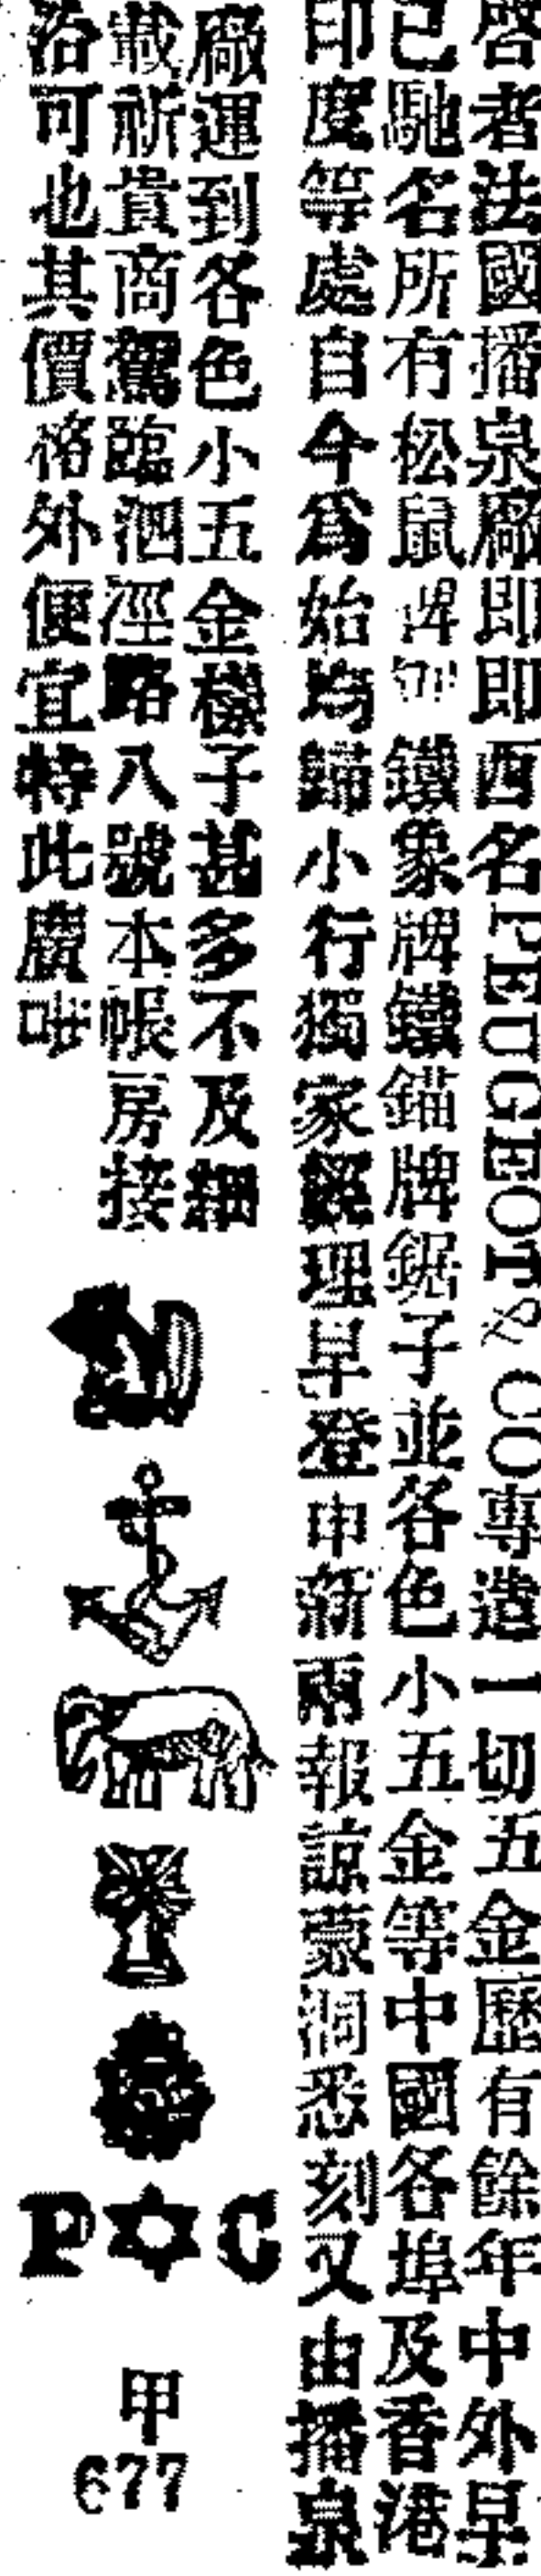 啓者法國播泉廠即即西名PEUGEOT & CO專造一切五金歷有餘年中外早
已馳名所有松鼠牌鋼鐵象牌鐵錨牌鋸子並各色小五金等中國各埠及香港
印度等處自今爲始均歸小行獨家經理早登申新兩報諒蒙洞悉刻又由播泉
廠運到各色小五金樣子甚多不及細
載祈貴商駕臨泗涇路八號本帳房接
洽可也其價格外便宜特此廣告
P C
甲
677